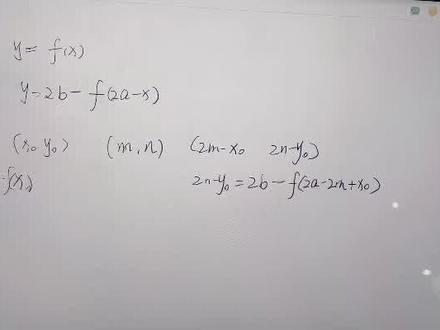 y= f(x)
y=2b- f(2a-x)
(x₀ y₀) (m,n) (2m-x₀ 2n-y₀)
f(x) 2n-y₀=2b-f(2a-2m+x₀)